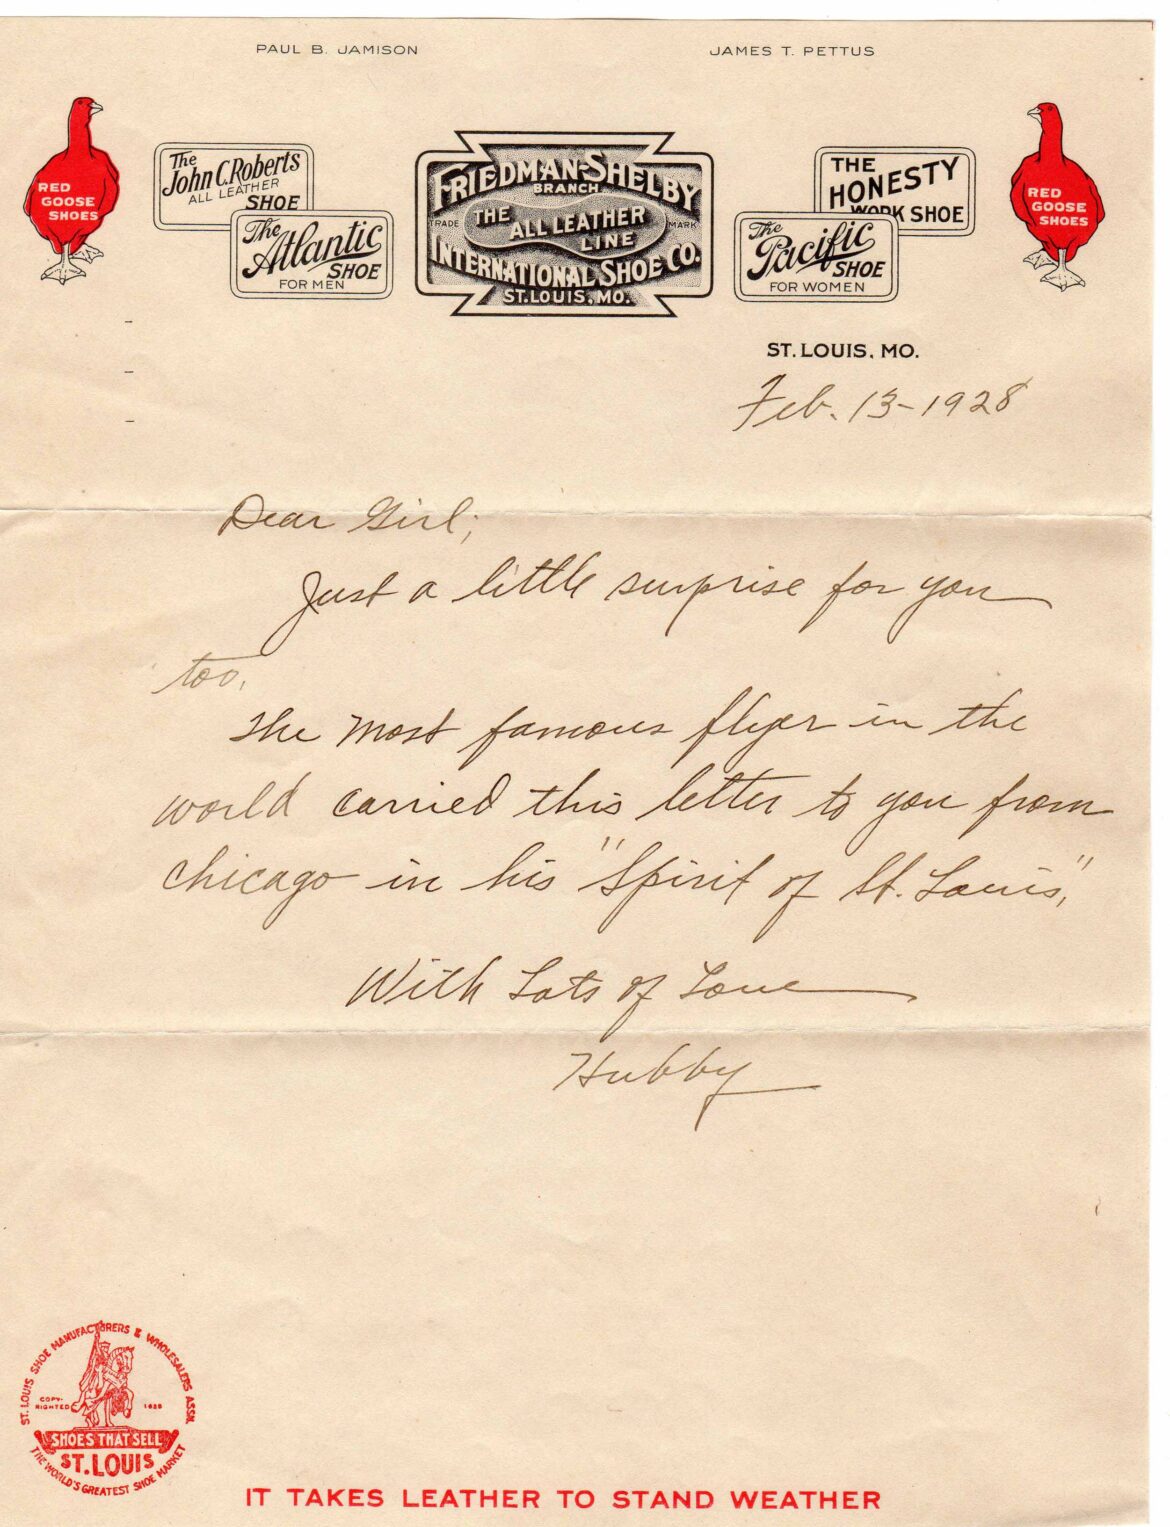 PAUL B. JAMISON
JAMES T. PETTUS
RED
GOOSE
SHOES
The
John C. Roberts
ALL LEATHER
SHOE
The
Atlantic
SHOE
FOR MEN
FRIEDMAN-SHELBY
BRANCH
TRADE
MARK
THE
ALL LEATHER
LINE
INTERNATIONAL SHOE CO.
ST. LOUIS, MO.
THE
HONESTY
WORK SHOE
The
Pacific
SHOE
FOR WOMEN
RED
GOOSE
SHOES
ST. LOUIS, MO.
Feb. 13-1928
Dear Girl;
Just a little surprise for you
too.
The most famous flyer in the
world carried this letter to you from
Chicago in his "Spirit of St. Louis",
With Lots of Love
Hubby
ST. LOUIS SHOE MANUFACTURERS & WHOLESALERS ASSN.
COPY-
RIGHTED
SHOES THAT SELL
ST. LOUIS
THE WORLD'S GREATEST SHOE MARKET
IT TAKES LEATHER TO STAND WEATHER